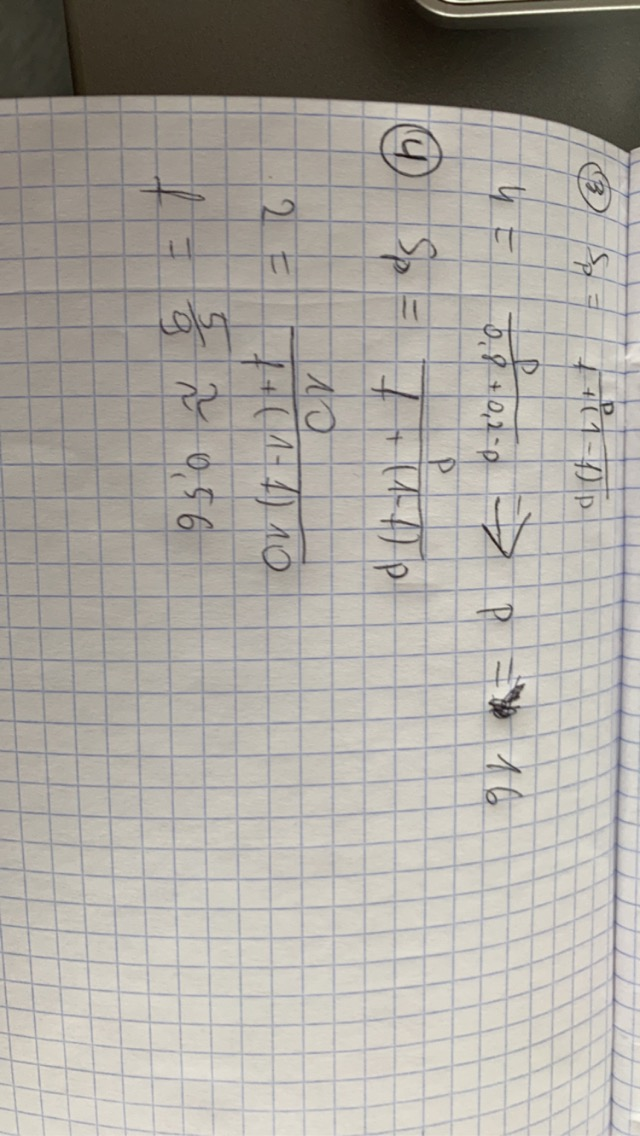 ③ Sp = p / (f + (1-f)p)
4 = p / (0,8 + 0,2·p) → p = 16
④ Sp = p / (f + (1-f)p)
2 = 10 / (f + (1-f)10)
f = 5/9 ≈ 0,56